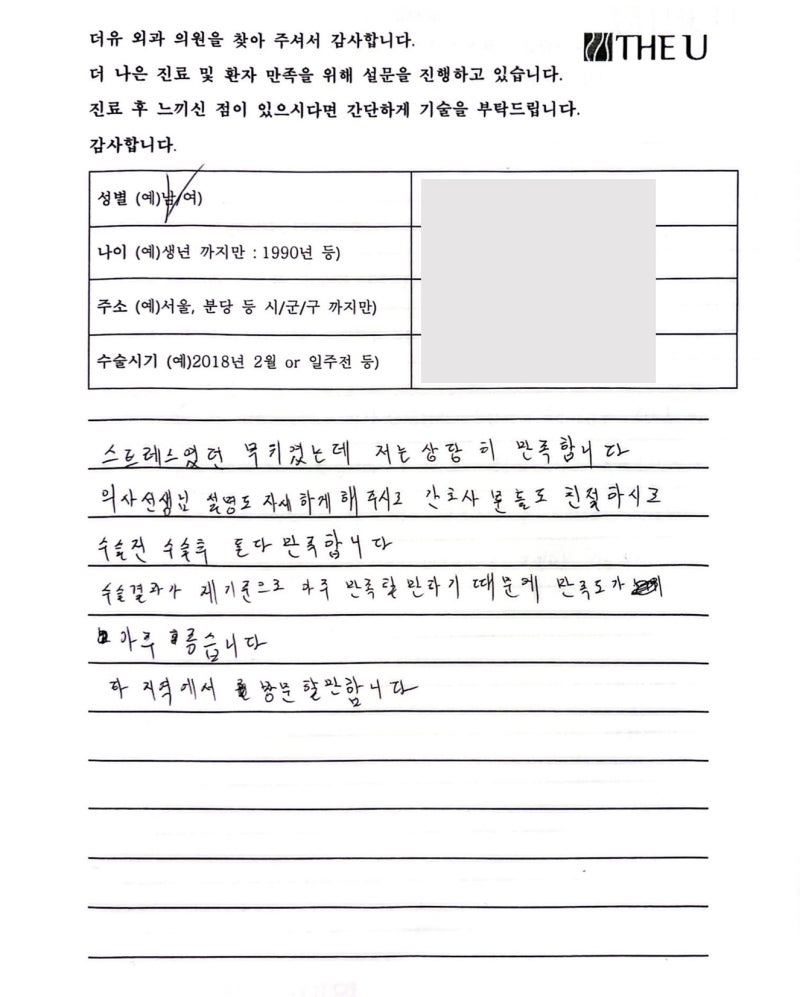 더유 외과 의원을 찾아 주셔서 감사합니다.
THE U
더 나은 진료 및 환자 만족을 위해 설문을 진행하고 있습니다.
진료 후 느끼신 점이 있으시다면 간단하게 기술을 부탁드립니다.
감사합니다.
성별 (예)남/여)
나이 (예)생년 까지만 : 1990년 등)
주소 (예)서울, 분당 등 시/군/구 까지만)
수술시기 (예)2018년 2월 or 일주전 등)
스트레스였던 는데 저는 상당히 만족합니다
의사선생님 설명도 자세하게 해주시고 간호사 분들도 친절하시고
수술전 수술후 둘다 만족합니다
수술결과가 제기준으로 아주 만족할만하기 때문에 만족도가
아주 습니다
타 지역에서 방문할만합니다